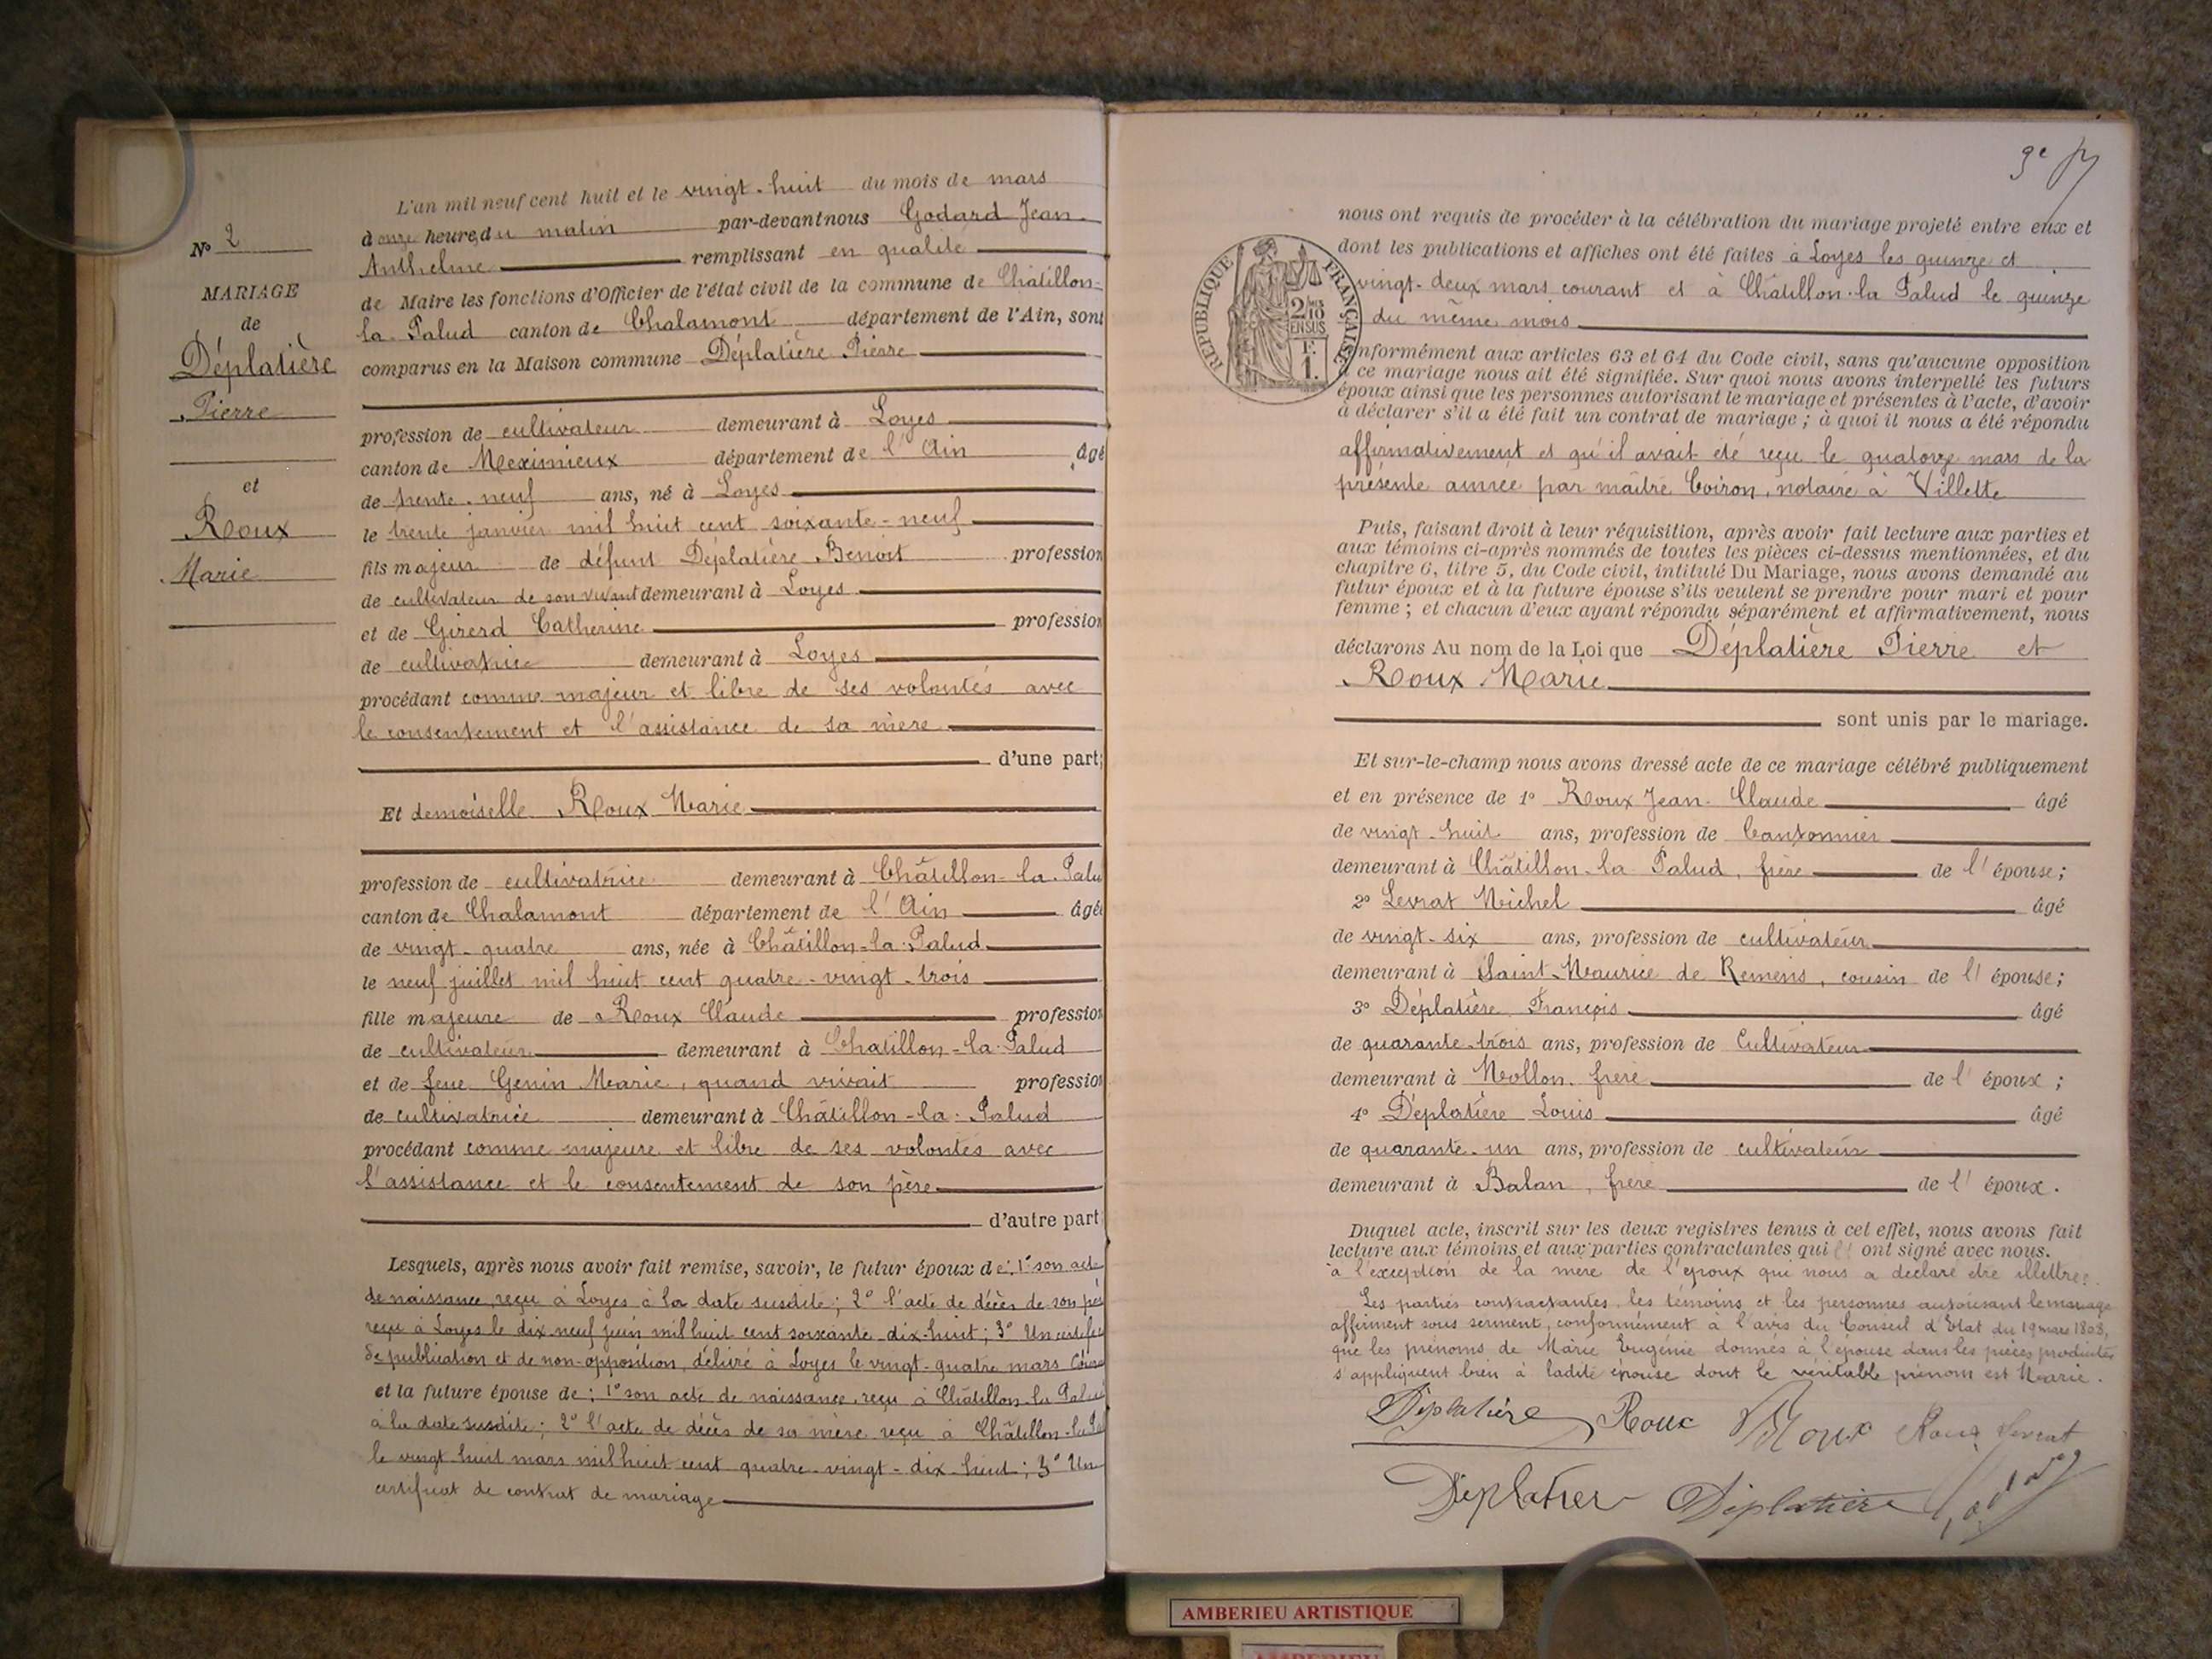 N° 2
MARIAGE
de
Déplatière
Pierre
et
Roux
Marie
L'an mil neuf cent huit et le vingt-huit du mois de mars
à onze heures du matin par-devant nous Godard Jean
Anthelme remplissant en qualité
de Maire les fonctions d'Officier de l'état civil de la commune de Châtillon-
la-Palud canton de Chalamont département de l'Ain, sont
comparus en la Maison commune Déplatière Pierre
profession de cultivateur demeurant à Loyes
canton de Meximieux département de l'Ain âgé
de trente-neuf ans, né à Loyes
le trente janvier mil huit cent soixante-neuf
fils majeur de défunt Déplatière Benoit profession
de cultivateur de son vivant demeurant à Loyes
et de Girerd Catherine profession
de cultivatrice demeurant à Loyes
procédant comme majeur et libre de ses volontés avec
le consentement et l'assistance de sa mère
d'une part;
Et demoiselle Roux Marie
profession de cultivatrice demeurant à Châtillon-la-Palu
canton de Chalamont département de l'Ain âgée
de vingt-quatre ans, née à Châtillon-la-Palud
le neuf juillet mil huit cent quatre-vingt-trois
fille majeure de Roux Claude profession
de cultivateur demeurant à Chatillon-la-Palud
et de feue Genin Marie, quand vivait profession
de cultivatrice demeurant à Châtillon-la-Palud
procédant comme majeure et libre de ses volontés avec
l'assistance et le consentement de son père
d'autre part
Lesquels, après nous avoir fait remise, savoir, le futur époux de: 1° son acte
de naissance, reçu à Loyes à la date susdite; 2° l'acte de décès de son père
reçu à Loyes le dix-neuf juin mil huit cent soixante-dix-huit; 3° Un certificat
de publication et de non-opposition, délivré à Loyes le vingt-quatre mars
et la future épouse de: 1° son acte de naissance, reçu à Châtillon-la-Palud
à la date susdite; 2° l'acte de décès de sa mère reçu à Châtillon-la-Pal
le vingt huit mars mil huit cent quatre-vingt-dix-huit; 3° Un
certificat de contrat de mariage
RÉPUBLIQUE FRANÇAISE
2/10
EN SUS
F.
1.
nous ont requis de procéder à la célébration du mariage projeté entre eux et
dont les publications et affiches ont été faites à Loyes les quinze et
vingt-deux mars courant et à Châtillon-la-Palud le quinze
du même mois
nformément aux articles 63 et 64 du Code civil, sans qu'aucune opposition
à ce mariage nous ait été signifiée. Sur quoi nous avons interpellé les futurs
époux ainsi que les personnes autorisant le mariage et présentes à l'acte, d'avoir
à déclarer s'il a été fait un contrat de mariage; à quoi il nous a été répondu
affirmativement et qu'il avait été reçu le quatorze mars de la
présente année par maître Coiron, notaire à Villette
Puis, faisant droit à leur réquisition, après avoir fait lecture aux parties et
aux témoins ci-après nommés de toutes les pièces ci-dessus mentionnées, et du
chapitre 6, titre 5, du Code civil, intitulé Du Mariage, nous avons demandé au
futur époux et à la future épouse s'ils veulent se prendre pour mari et pour
femme; et chacun d'eux ayant répondu séparément et affirmativement, nous
déclarons Au nom de la Loi que Déplatière Pierre et
Roux Marie
sont unis par le mariage.
Et sur-le-champ nous avons dressé acte de ce mariage célébré publiquement
et en présence de 1° Roux Jean-Claude âgé
de vingt-huit ans, profession de Cantonnier
demeurant à Châtillon-la-Palud, frère de l'épouse;
2° Levrat Michel âgé
de vingt-six ans, profession de cultivateur
demeurant à Saint-Maurice de Remens, cousin de l'épouse;
3° Déplatière François âgé
de quarante-trois ans, profession de Cultivateur
demeurant à Mollon, frère de l'époux;
4° Déplatière Louis âgé
de quarante-un ans, profession de cultivateur
demeurant à Balan, frère de l'époux.
Duquel acte, inscrit sur les deux registres tenus à cet effet, nous avons fait
lecture aux témoins et aux parties contractantes qui ont signé avec nous.
à l'exception de la mère de l'époux qui nous a déclaré être illettrée.
Les parties contractantes, les témoins et les personnes autorisant le mariage
affirment sous serment, conformément à l'avis du Conseil d'Etat du 19 mars 1808,
que les prénoms de Marie Eugénie donnés à l'épouse dans les pièces produites
s'appliquent bien à ladite épouse dont le véritable prénom est Marie.
Déplatière Roux Roux Roux Levrat
Déplatier Déplatière Godard
AMBERIEU ARTISTIQUE
AMBERIEU